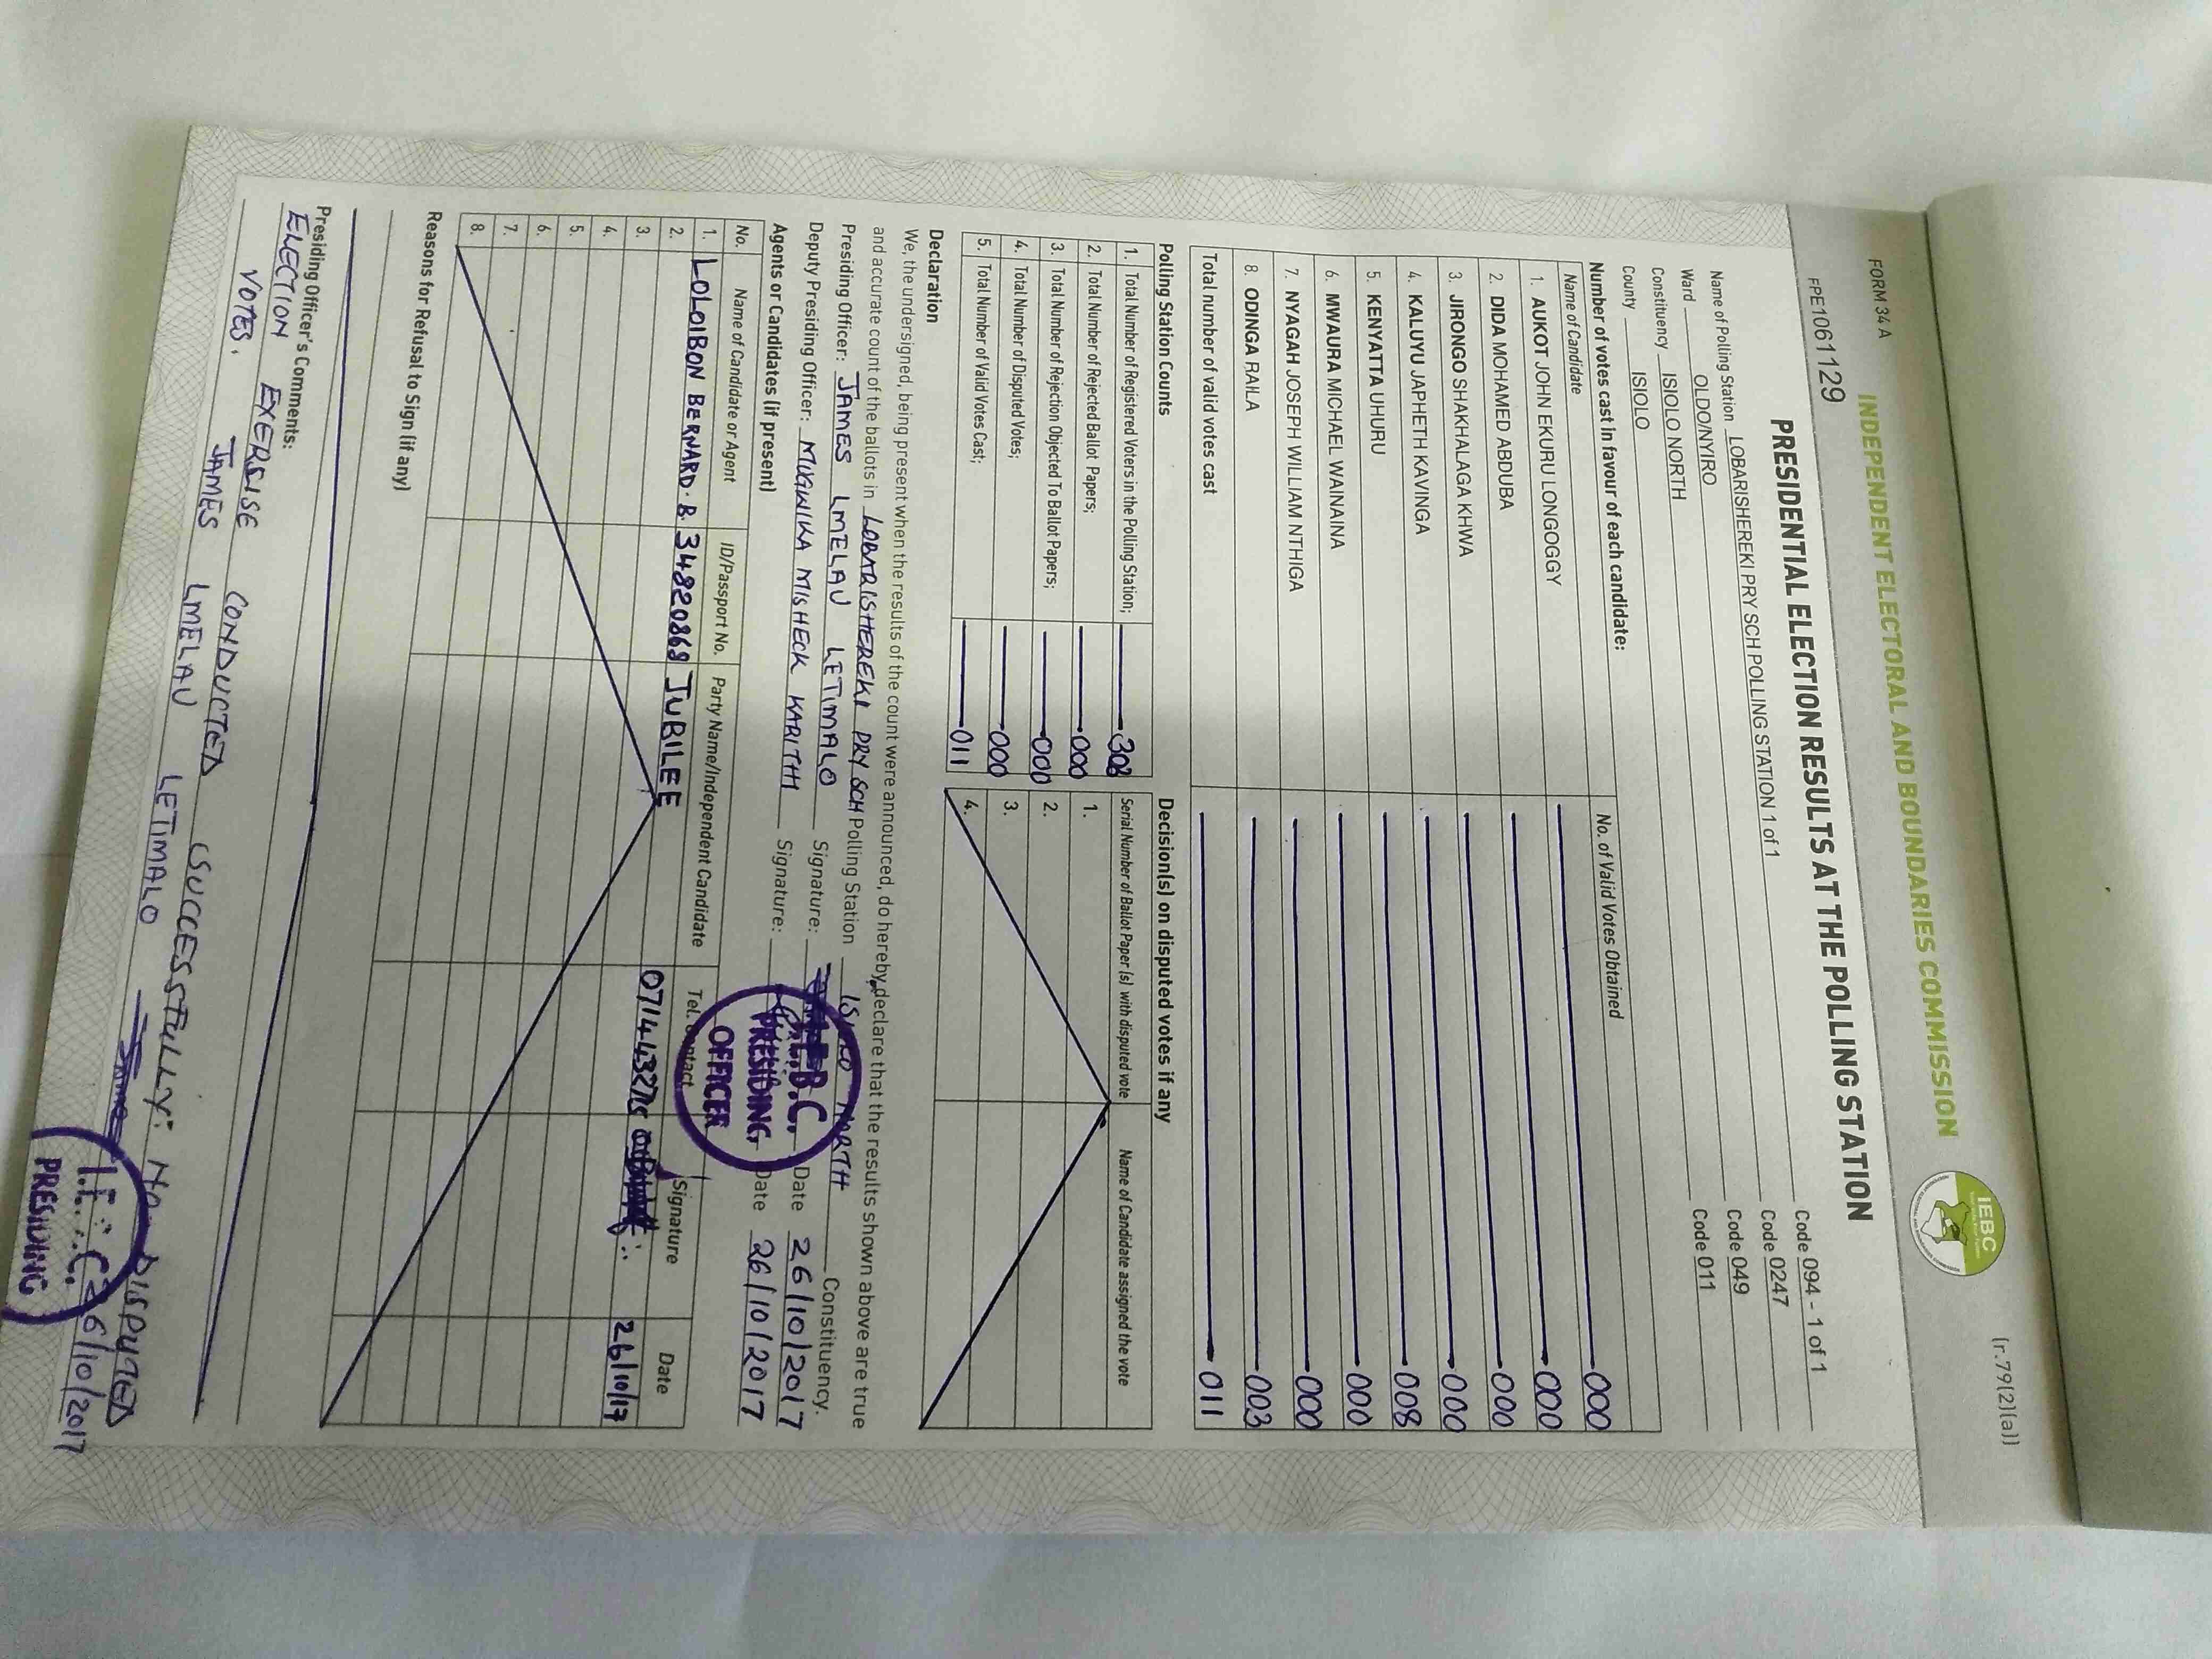 FORM 34 A
(r.79(2)(a))
INDEPENDENT ELECTORAL AND BOUNDARIES COMMISSION
IEBC
FPE1061129
PRESIDENTIAL ELECTION RESULTS AT THE POLLING STATION
Name of Polling Station LOBARISHEREKI PRY SCH POLLING STATION 1 of 1 Code 094 - 1 of 1
Ward OLDO/NYIRO Code 0247
Constituency ISIOLO NORTH Code 049
County ISIOLO Code 011
Number of votes cast in favour of each candidate:
Name of Candidate No. of Valid Votes Obtained
1. AUKOT JOHN EKURU LONGOGGY 000
2. DIDA MOHAMED ABDUBA 000
3. JIRONGO SHAKHALAGA KHWA 000
4. KALUYU JAPHETH KAVINGA 000
5. KENYATTA UHURU 008
6. MWAURA MICHAEL WAINAINA 000
7. NYAGAH JOSEPH WILLIAM NTHIGA 000
8. ODINGA RAILA 003
Total number of valid votes cast 011
Polling Station Counts
1. Total Number of Registered Voters in the Polling Station;
2. Total Number of Rejected Ballot Papers; 000
3. Total Number of Rejection Objected To Ballot Papers; 000
4. Total Number of Disputed Votes; 000
5. Total Number of Valid Votes Cast; 011
Decision(s) on disputed votes if any
Serial Number of Ballot Paper (s) with disputed vote Name of Candidate assigned the vote
1.
2.
3.
4.
Declaration
We, the undersigned, being present when the results of the count were announced, do hereby declare that the results shown above are true
and accurate count of the ballots in LOBARISHEREKI PRY SCH Polling Station ISIOLO NORTH Constituency.
Presiding Officer: JAMES LMELAU LETIMALO Signature: Date 26/10/2017
Deputy Presiding Officer: MUGWIKA MISHECK KARITHI Signature: Date 26/10/2017
I.E.B.C.
PRESIDING
OFFICER
Agents or Candidates (if present)
No. Name of Candidate or Agent ID/Passport No. Party Name/Independent Candidate Tel. Contact Signature Date
1. LOLOIBON BERNARD. B. JUBILEE 26/10/17
2.
3.
4.
5.
6.
7.
8.
Reasons for Refusal to Sign (if any)
Presiding Officer's Comments:
ELECTION EXERCISE CONDUCTED SUCCESSFULLY: NO DISPUTED
VOTES. JAMES LMELAU LETIMALO 26/10/2017
PRESIDING